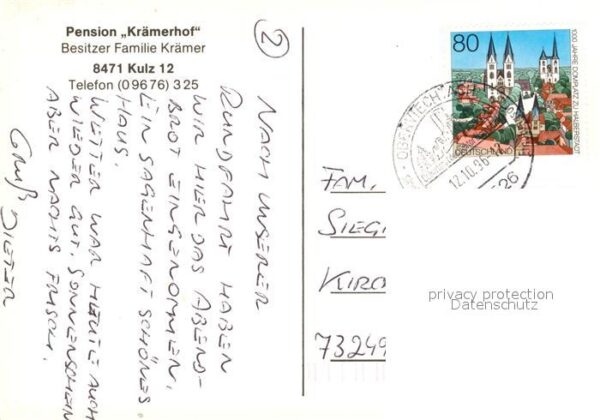 Pension „Krämerhof"
Besitzer Familie Krämer
8471 Kulz 12
Telefon (0 96 76) 3 25
2
NACH UNSERER
RUNDFAHRT HABEN
WIR HIER DAS ABEND-
BROT EINGENOMMEN.
EIN SAGENHAFT SCHÖNES
HAUS.
WETTER WAR HEUTE AUCH
WIEDER GUT. SONNENSCHEIN
ABER NACHTS FRISCH.
Gruß DIETER
80
1000 JAHRE DOMPLATZ ZU HALBERSTADT
DEUTSCHLAND
12.10.96
FAM.
SIEG
KIRC
73249
privacy protection
Datenschutz